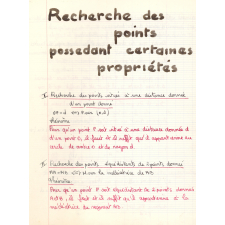 Recherche des
points
possedant certaines
propriétés
Recherche des points situé à une distance donnée
d'un point donné
Théorème
Pour qu'un point P soit situé à une distance donnée d
d'un point O, il faut et il suffit qu'il appartienne au
cercle de centre O et de rayon d.
Recherche des points équidistants de 2 points donnés
Théorème
Pour qu'un point P soit équidistant de 2 points donnés
A et B, il faut et il suffit qu'il appartienne à la
médiatrice du segment AB.